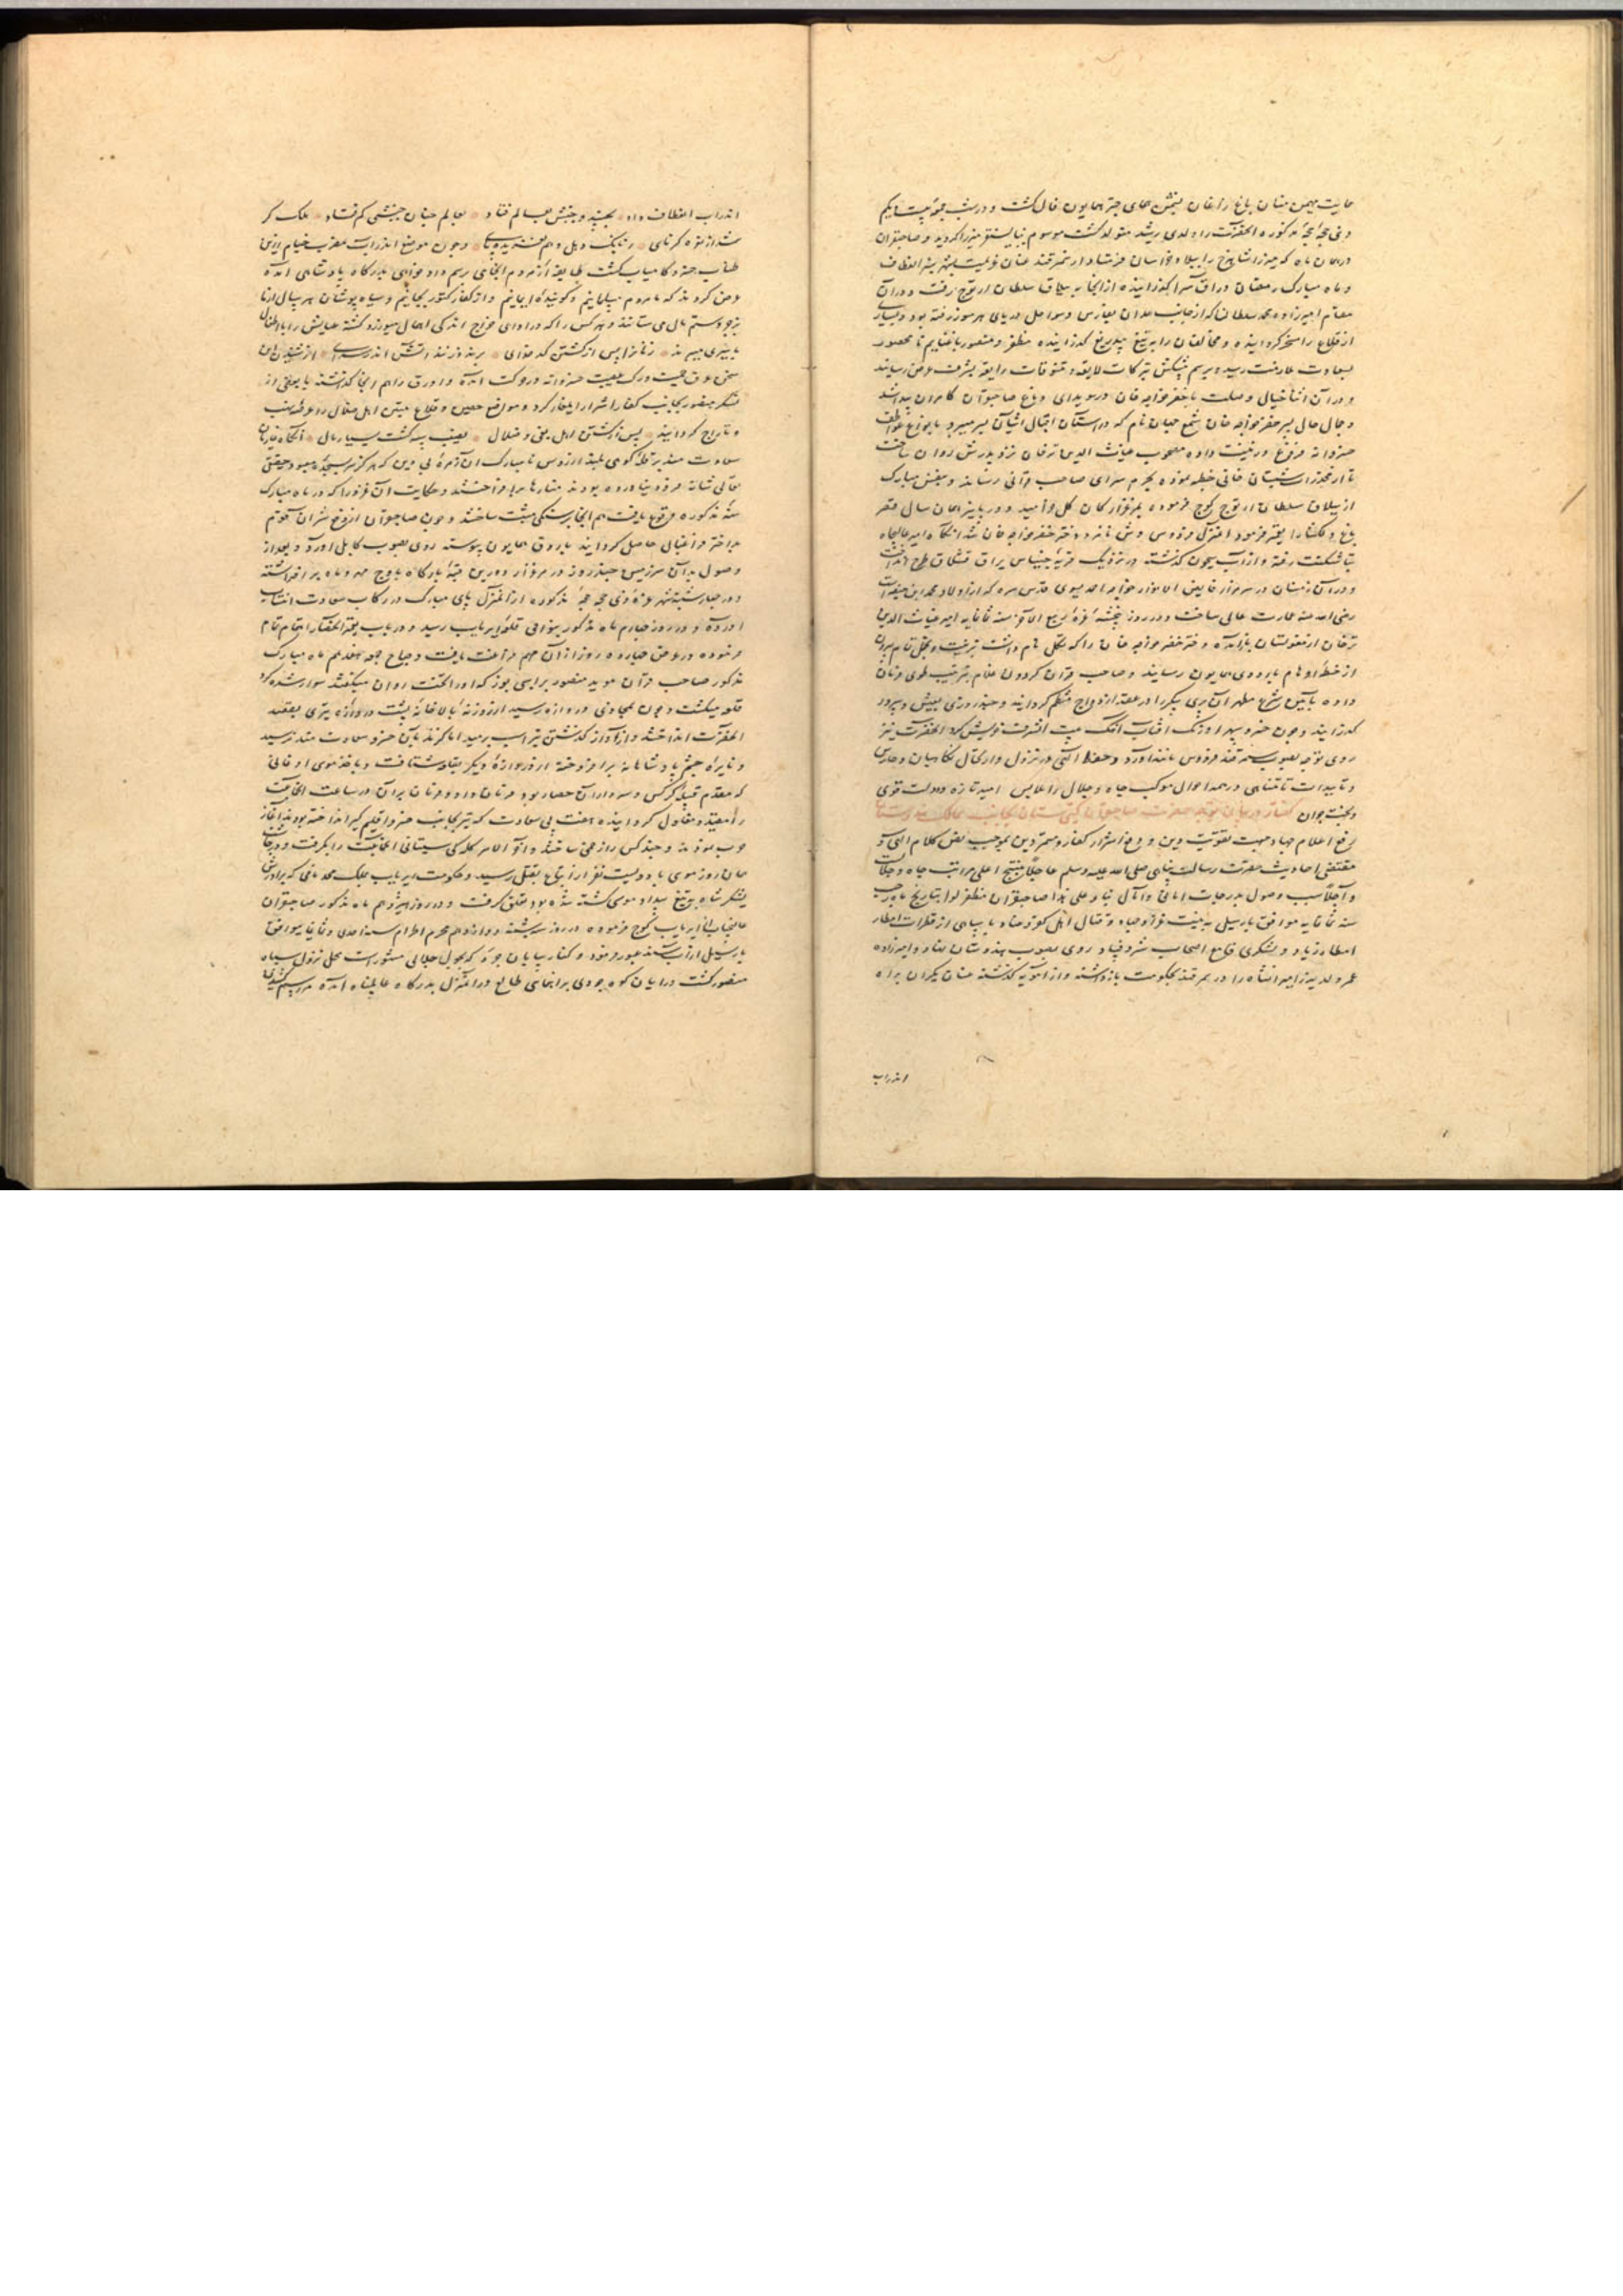 حمایت بهمن عنان باغ راغان بیمن همای چتر همایون فال گشت و در شب جمعه بیست یکم
ذی حجه مذکوره آنحضرت را ولدی رشد متولد گشت موسوم ببایسنقر میرزا گردید و صاحبقران
در همان ماه که میرزا شاهرخ را بایالت خراسان فرستاد از سمرقند عنان عزیمت
و ماه مبارک رمضان در اق سرا گذرانیده از آنجا به ییلاق سلطان ارتوج رفت و در آن
مقام امیرزاده محمد سلطان که از جانب همدان بفارس و سواحل دریای هرموز رفته بود و بسیاری
از قلاع را مسخر گردانیده و مخالفان را به تیغ بیدریغ گذرانیده مظفر و منصور با غنایم نامحصور
بسعادت ملازمت رسید و برسم پیشکش تبرکات لایقه و تنسوقات رایقه بشرف عرض رسانید
و در آن اثنا خیالی وصلت با خضر خواجه خان در سویدای دماغ صاحبقران کامران پیدا شد
و جمال حال پسر خضر خواجه خان شمع جهان نام که در آستان اقبال آشیان بسر میبرد بانواع عواطف
خسروانه فروغ و زینت داده مصحوب غیاث الدین ترخان نزد پدرش روان ساخت
تا از مخدرات شبستان خانی خطبه نموده بحرم سرای صاحب قرانی رساند و بنفس مبارک
از ییلاق سلطان ارتوج کوچ فرموده بمرغزار کان گل خرامید و در پاییز همان سال قصر
باغ دلگشا را
بتاشکنت رفته و از آب سیحون گذشته در نزدیک قریه چیناس یراق قشلاق طرح انداخت
و در آن زمستان در سر مزار فایض الانوار خواجه احمد یسوی قدس سره که از اولاد محمد ابن حنفیه است
رضی الله عنه عمارت عالی ساخت و در روز پنجشنبه غره ربیع الاخر سنه ثمانمایه امیر غیاث الدین
ترخان از مغولستان باز آمده دختر خضر خواجه خان را که تکل نام داشت
از خطه اوهام باردوی همایون رسانید و صاحب قران گردون غلام بترتیب طوی فرمان
داده بآیین شرع مطهر آن پری پیکر را در عقد ازدواج منتظم گردانید و چند روزی بعیش و سرور
گذرانید و چون خسرو سپهر اورنگ آفتاب آهنگ بیت الشرف خویش کرد آنحضرت نیز
روی توجه بصوب سمرقند فردوس مانند آورد و حفظ الهی در نزول و ارتحال نگاهبان و حارس
و تاییدات نامتناهی در همه احوال موکب جاه و جلال را ملابس امید تازه و دولت قوی
و بخت جوان گفتار در بیان توجه حضرت صاحبقران گیتی ستان بجانب ممالک هندوستان
رفع اعلام جهاد جهت تقویت دین و دفع اشرار کفار و متمردین بموجب نص کلام الهی و
مقتضی احادیث حضرت رسالت پناهی صلی الله علیه وسلم عاجلا منتج اعلی مراتب جاه و جلالت
و آجلا سبب وصول بدرجات امانی و آمال بنا علی هذا صاحبقران مظفر لوا بتاریخ ماه رجب
سنه ثمانمایه موافق بارسیل به نیت غزا و جهاد و قتال اهل کفر و عناد با سپاهی از قطرات امطار
امطار زیاد و لشکری قامع اصحاب شر و فساد روی بصوب هندوستان نهاد و امیرزاده
عمر ولد میرزا میرانشاه را در سمرقند بحکومت بازداشته و از آمویه گذشته عنان یکران براه
اندراب
اندراب انعطاف داد بجنبید و جنبش بعالم فتاد بعالم چنان جنبشی کم فتاد فلک کر
شد از نوه کرنای و بانگ دهل و چون موضع اندراب مضرب خیام زرین
طناب خسرو کامیاب گشت طایفه از مردم آنجای برسم دادخواهی بدرگاه پادشاهی آمده
عرض کردند که ما مردم مسلمانیم و گوینده ایمانیم و از کفار کتور بجانیم و سیاه پوشان هر سال از ما
بزجر و ستم مال می ستانند و هر کس را که در ادای خراج اندکی اهمال میورزد کشته عیالش را با اطفال
باسیری میبرند زنانرا پس از کشتن کدخدای برند و زنند آتش اندر سرای از شنیدن این
سخن عرق حمیت و رگ حمیت خسروانه در حرکت آمده و اورق را هم آنجا گذاشته با بعضی از
لشکر منصور بجانب کفار اشرار ایلغار کرد و مواضع حصین و قلاع متین اهل ضلال را عرضه نهب
و تاراج گردانید پس از کشتن اهل بغی و ضلال بغنیمت گشت بسیار مال آنگاه غازیان
سعادتمند بر قله کوهی بلند از رؤس نامبارک آن زمره بی دین که هرگز سر بسجده معبود حقیقی
تعالی شانه فرو نیاورده بودند منارها برافراختند و حکایت آن غزو را که در ماه مبارک
سنه مذکوره وقوع یافت هم آنجا بر سنگی مثبت ساختند و چون صاحبقران از دفع شر آن قوم
بد اختر فراغبالی حاصل گردانید باردوی همایون پیوسته روی بصوب کابل آورد و بعد از
وصول بدان سرزمین چند روز در مرغزار دورین قبه بارگاه باوج مهر و ماه برافراشته
و در چهارشنبه غره ذی حجه مذکوره از آن منزل پای مبارک در رکاب سعادت انتساب
آورده و در روز چهارم ماه مذکور بنواحی قلعه ایریاب رسید و در باب تعمیر آن حصار اهتمام تمام
فرموده در عرض چهارده روز از آن مهم فراغت یافت و صباح جمعه هفدهم ماه مبارک
مذکور صاحب قران مؤید منصور بر اسبی بوز که او را الحنت روان میگفتند سوار شده گرد
قلعه میگشت و چون بمحاذی دروازه رسید از روزنه بالاخانه پشت دروازه تیری بقصد
آنحضرت انداختند و از آواز گذشتن تیر اسب برمید اما گزند بآن خسرو سعادتمند نرسید
و نایره خشم پادشاهانه برافروخته از دروازه دیگر بقلعه شتافت و باخذ موسی اوغانی
که مقدم قبیله کرکس و سردار آن حصار بود فرمان داد و فرمان بران در ساعت آنجماعت
را مقید و مغلول گردانیده هفت بی سعادت که تیر بجانب خسرو اقلیم گیر انداخته بودند آغاز
حرب نمودند و چند کس را زخمی ساختند و آخر الامر کلکی سیستانی آنجماعت را بگرفت و در
همان روز موسی با دویست نفر از اتباع بقتل رسید و حکومت ایریاب بملک محمد نامی که برادرش
لشکر شاه به تیغ بیداد موسی کشته شده بود تعلق گرفت و در روز هیژدهم ماه مذکور صاحبقران
عالیجناب از ایریاب کوچ فرموده در روز سه شنبه دوازدهم محرم الحرام سنه احدی و ثمانمایه موافق
بارسئیل از آب سند عبور فرمود و کنار بیابان جرو که بچول جلالی مشهور است محل نزول سپاه
منصور گشت و رایان کوه جودی براهنمای طالع در آن منزل بدرگاه عالم پناه آمده مراسم بندگی